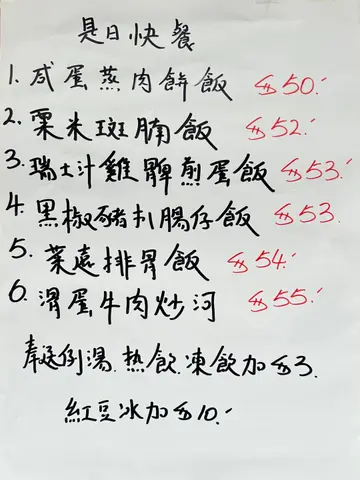 是日快餐
1. 咸蛋蒸肉餅飯 $50.-
2. 粟米斑腩飯 $52.-
3. 瑞士汁雞髀煎蛋飯 $53.-
4. 黑椒豬扒腸仔飯 $53.
5. 菜遠排骨飯 $54.-
6. 滑蛋牛肉炒河 $55.-
奉送例湯.熱飲.凍飲加$3.
紅豆冰加$10.-